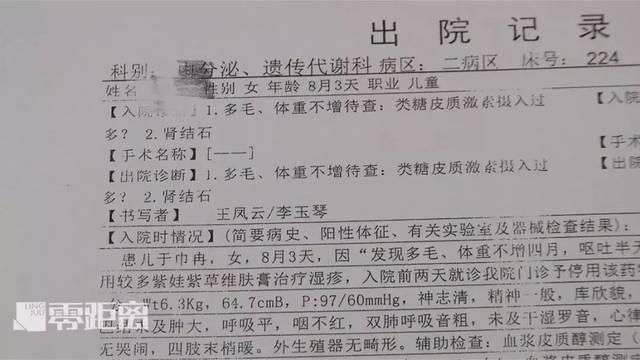 出院记录
科别: 分泌、遗传代谢科 病区: 二病区 床号: 224
姓名 性别 女 年龄 8月3天 职业 儿童
【入院诊断】1.多毛、体重不增待查: 类糖皮质激素摄入过 【入
多? 2.肾结石
【手术名称】[——] 【手
【出院诊断】1.多毛、体重不增待查: 类糖皮质激素摄入过 【出
多? 2.肾结石
【书写者】 王凤云/李玉琴
【入院时情况】(简要病史、阳性体征、有关实验室及器械检查结果):
患儿于巾冉, 女, 8月3天, 因“发现多毛、体重不增四月, 呕吐半天
用较多紫娃紫草维肤膏治疗湿疹, 入院前两天就诊我院门诊予停用该药
分, Wt6.3Kg, 64.7cmB, P:97/60mmHg, 神志清, 精神一般, 库欣貌,
巴结未及肿大, 呼吸平, 咽不红, 双肺呼吸音粗, 未及干湿罗音, 心律
无哭闹, 四肢末梢暖。外生殖器无畸形。辅助检查: 血浆皮质醇测定(
血浆皮质醇测
LING JULI 零距离